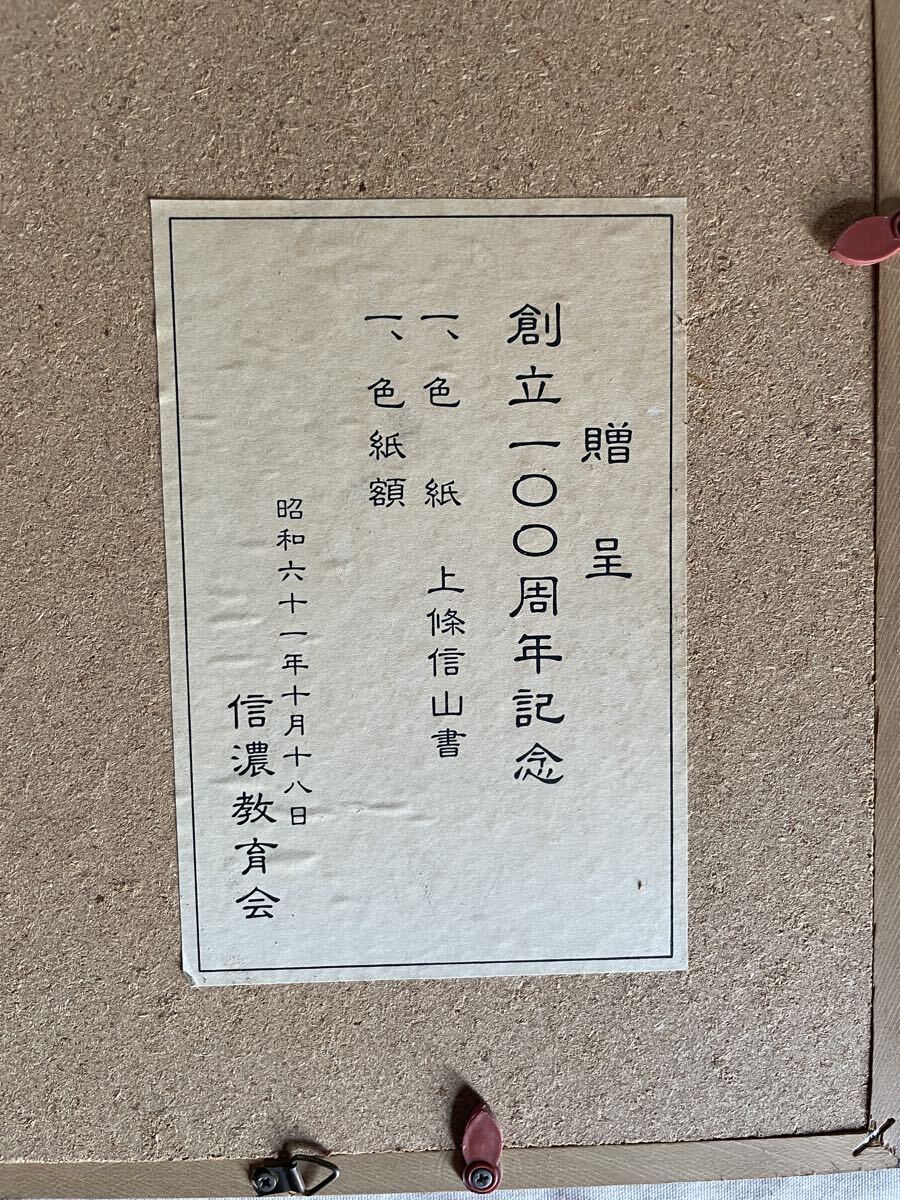 贈呈
創立一〇〇周年記念
一、色紙 上條信山書
一、色紙額
昭和六十一年十月十八日
信濃教育会